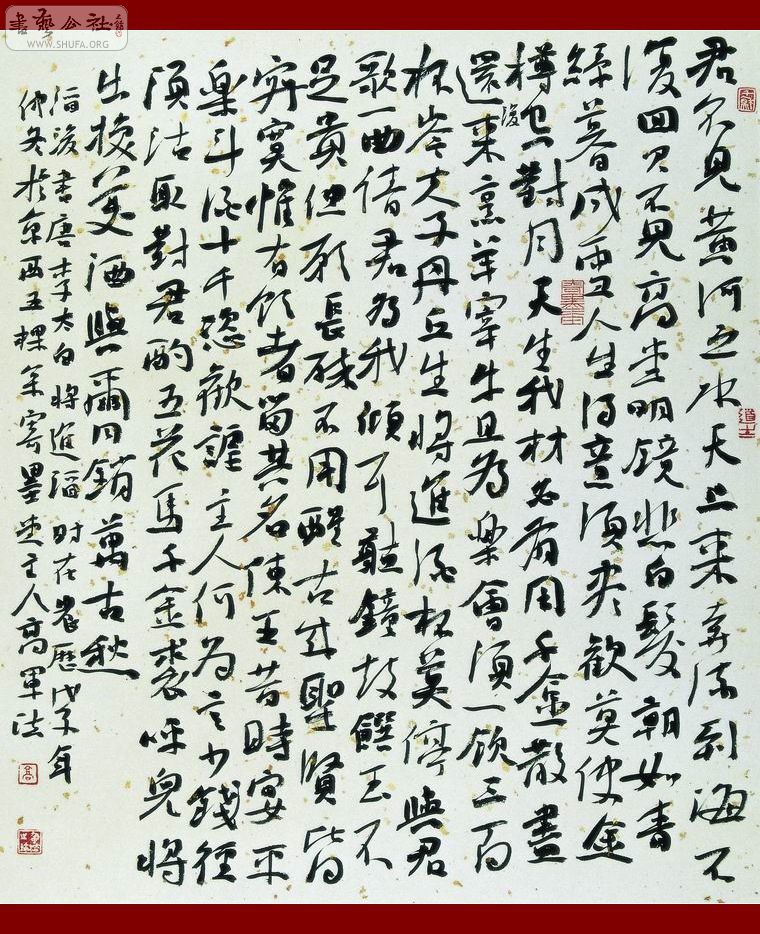 書藝公社
WWW.SHUFA.ORG
君不見黄河之水天上來奔流到海不
復回君不見高堂明鏡悲白髮朝如青
絲暮成雪人生得意須尽歡莫使金
樽空對月天生我材必有用千金散盡
復
還來烹羊宰牛且為樂會須一飲三百
杯岑夫子丹丘生將進酒杯莫停與君
歌一曲倩君為我傾耳聽鐘鼓饌玉不
足貴但願長醉不用醒古來聖賢皆
寂寞惟有飲者留其名陳王昔時宴平
樂斗酒十千恣歡謔主人何為言少錢徑
須沽取對君酌五花馬千金裘呼兒將
出換美酒與爾同銷萬古愁
酒後書唐李太白將進酒时在農歷戊子年
仲冬於京西五棵寄墨堂主人高軍法
道士
高